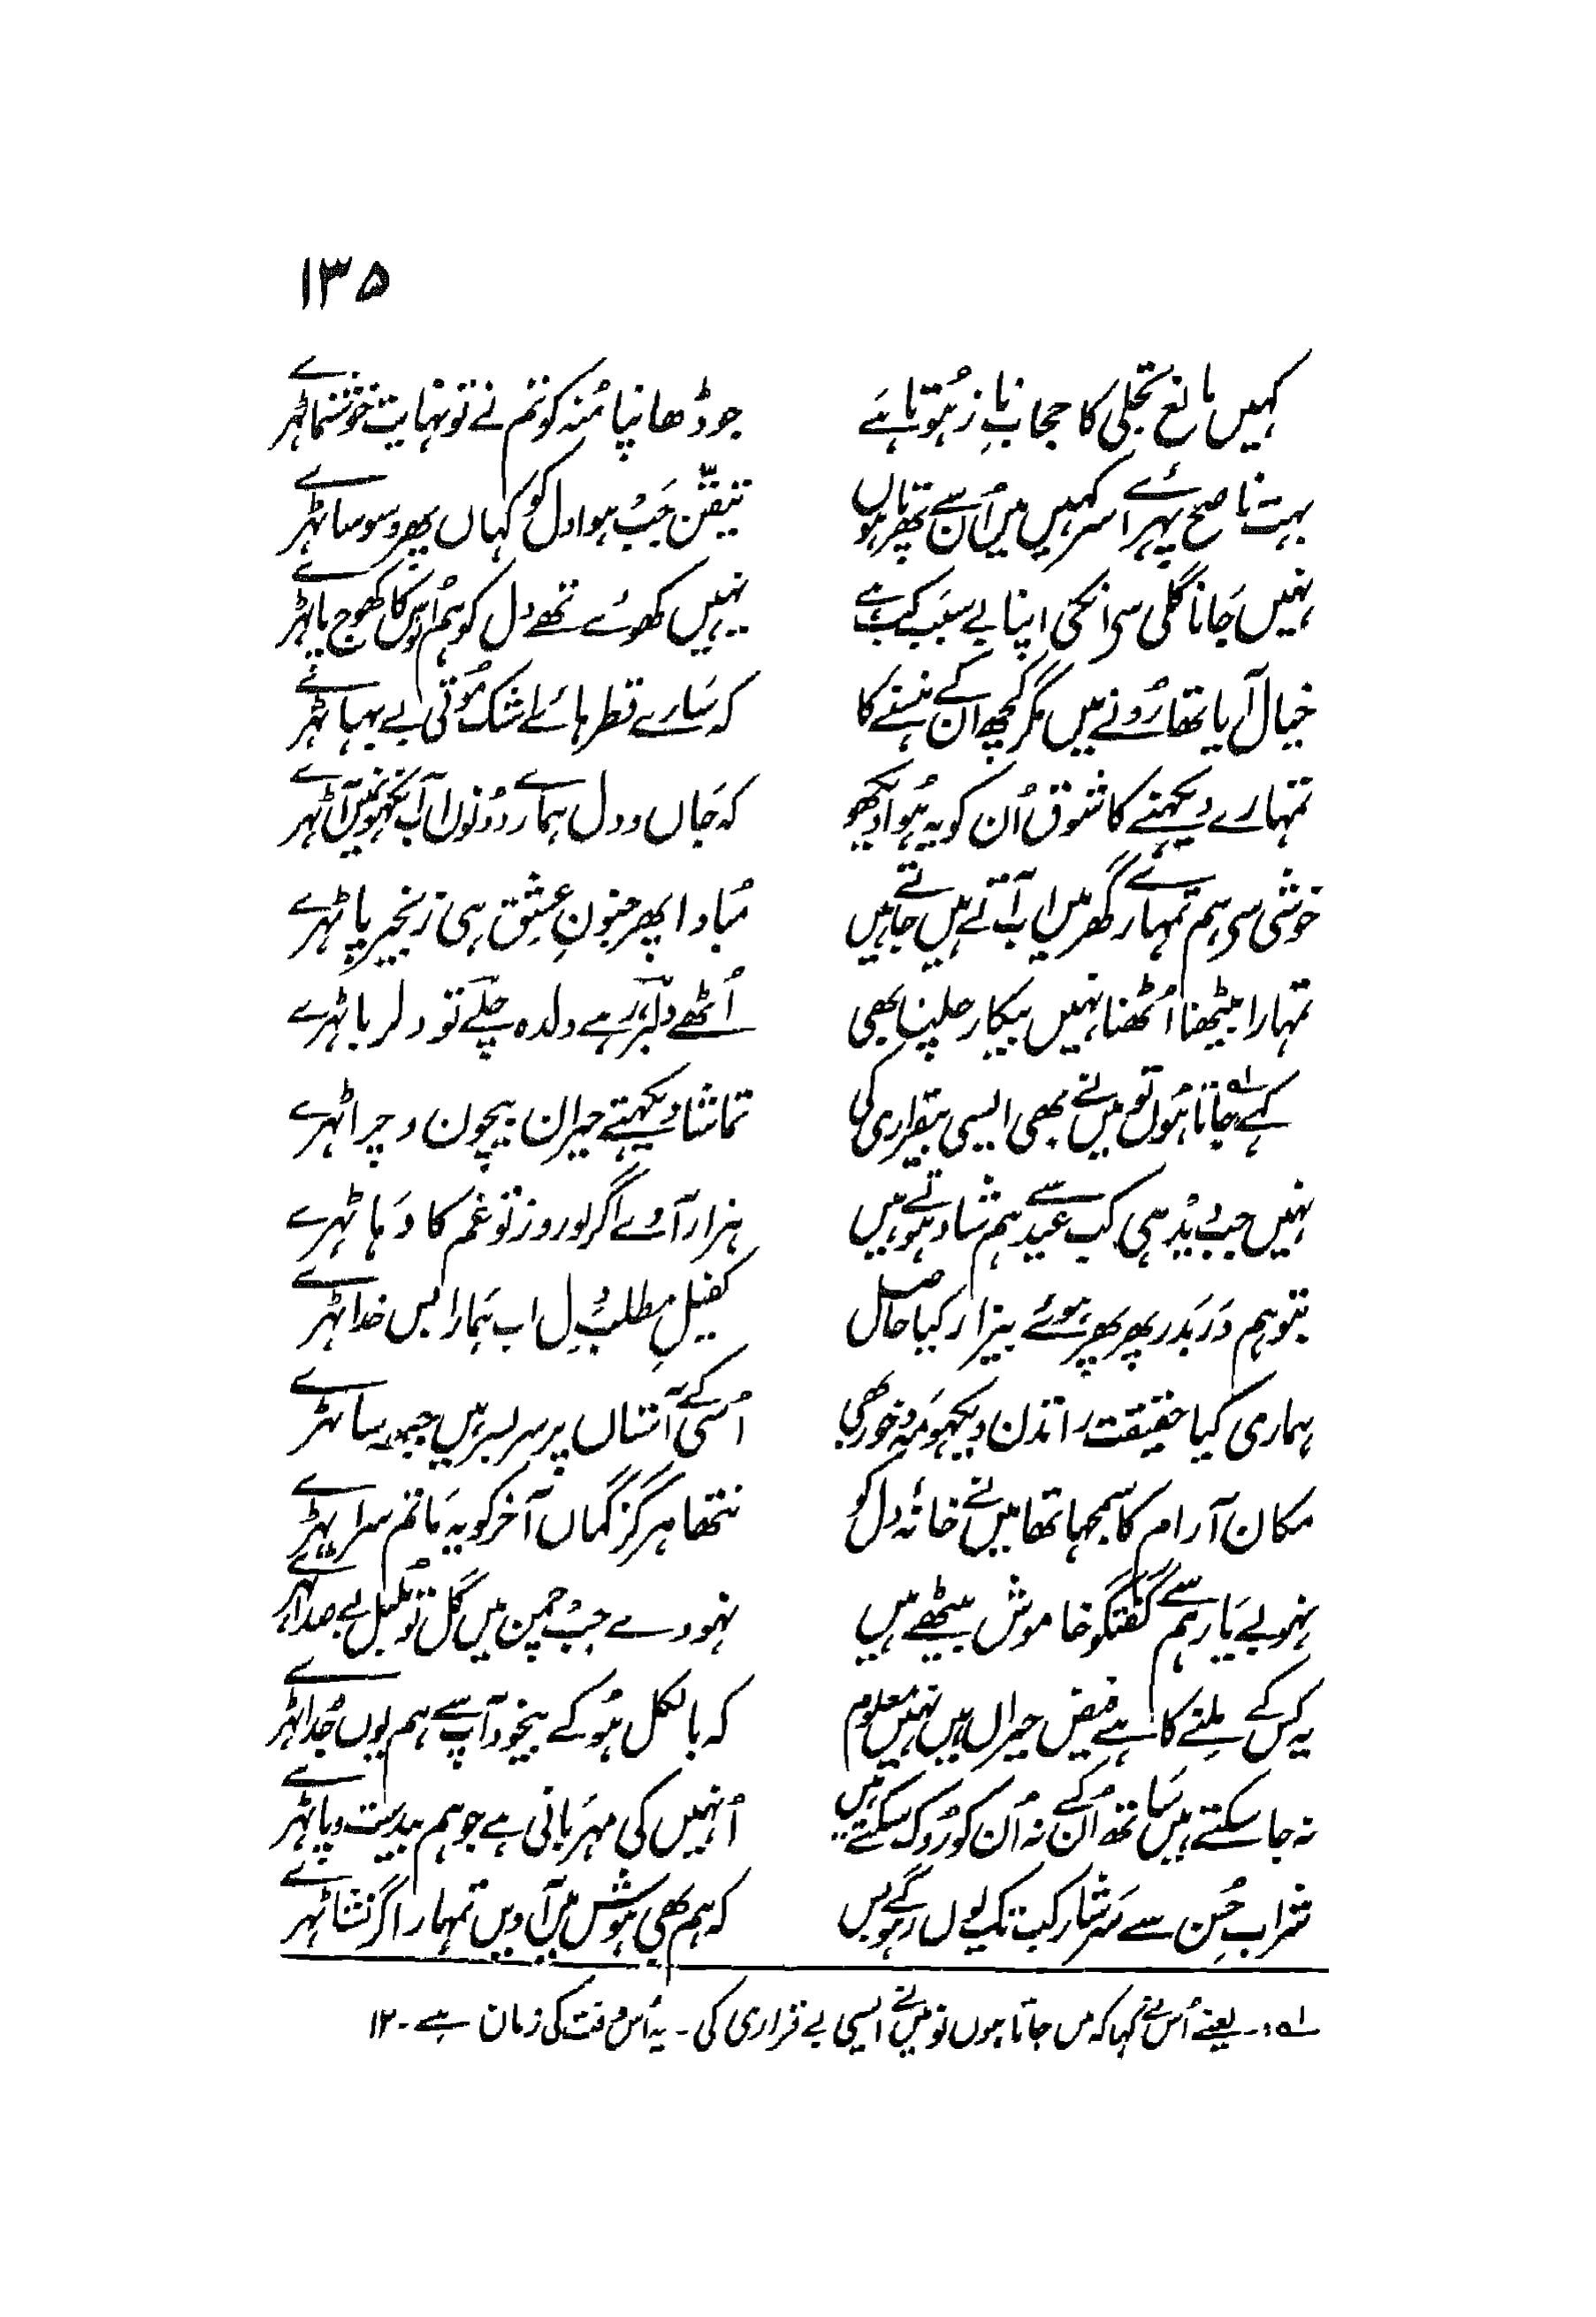 ۱۳۵
کہیں مانع تجلی کا حجابِ ناز ہُوتا ہَے جو ڈھانپا مُنہ کو تم نے تو نہایت خوشنما ٹہرے
بہت ناصح پہرائے سر کہیں میں اُن سے پھرتا ہوں تیقّن جَبْ ہوا دل کو کہاں پھر وسوسا ٹہرے
نہیں جَانا گلی سی انکی اپنا بے سبَب کب ہے نہیں کھوئے تھے دل کو ہم اُس کا کھوج پا ٹہرے
خیال آیا تھا رُونے میں مگر کچھ ان کے ہنسنے کا کہ سَارے قطرہائے اشک مُوتی بے بہا ٹہرے
تمہارے دیکہنے کا شوق اُن کو یہ ہُوا دیکھو کہ جَاں و دل ہمارے دُونوں اب آنکہوں میں آ ٹہرے
خوشی سی ہم تمہارے گھر میں اب آتے ہیں جاتے ہیں مُبادا پھر جنونِ عشق ہی زنجیر پا ٹہرے
تمہارا بیٹھنا اُٹھنا نہیں بیکار چلنا بھی اُٹھے دلبر رہے دلدہ چلے تو دلربا ٹہرے
کہے ؎۱ جاتا ہُوں تو میں نے بھی ایسی بیقراری کی تماشا دیکہتے حیران بیچون و چرا ٹہرے
نہیں جب دید ہی کب عید سے ہم شاد ہوتے ہیں ہزار آوے اگر نوروز تو غم کا دَہا ٹہرے
بتو ہم دَر بَدر پھر پھر ہوئے بیزار کیا حاصل کفیلِ مطلبِ دل اب ہَمارا بس خدا ٹہرے
ہماری کیا حقیقت راتدن دیکہو مَہ و خور بھی اُسی کے آستاں پر سر بسر ہیں جبہہ سا ٹہرے
مکان آرام کا سمجہا تھا میں نے خانۂ دل کو نتھا ہرگز گماں آخر کو یہ مَاتم سرا ٹہرے
نہو بے یَار ہم سے گفتگو خاموش بیٹھے ہیں نہووے جبْ چمن میں گل تو بُلبل بے صدا ٹہرے
یہ کس کے مِلنے کا ہے فیض حیراں ہیں نہیں معلوم کہ بالکل ہُو کے بیخود آپ سے ہم یوں جُدا ٹہرے
نہ جا سکتے ہیں سَاتھ اُن کے نہ اُن کو رُوک سکتے ہیں اُنہیں کی مہرَبانی ہے جو ہم بیدست و پا ٹہرے
شرابِ حُسن سے سَرشار کب تک یوں رہو گے بس کہ ہم بھی ہُوش میں آویں تمہارا گر نَشا ٹہرے
؎۱ :۔ یعنے اُس نے کہا کہ میں جاتا ہوں تو میں نے ایسی بے قراری کی ۔ یہ اُس وقت کی زبان ہے ۔ ۱۲